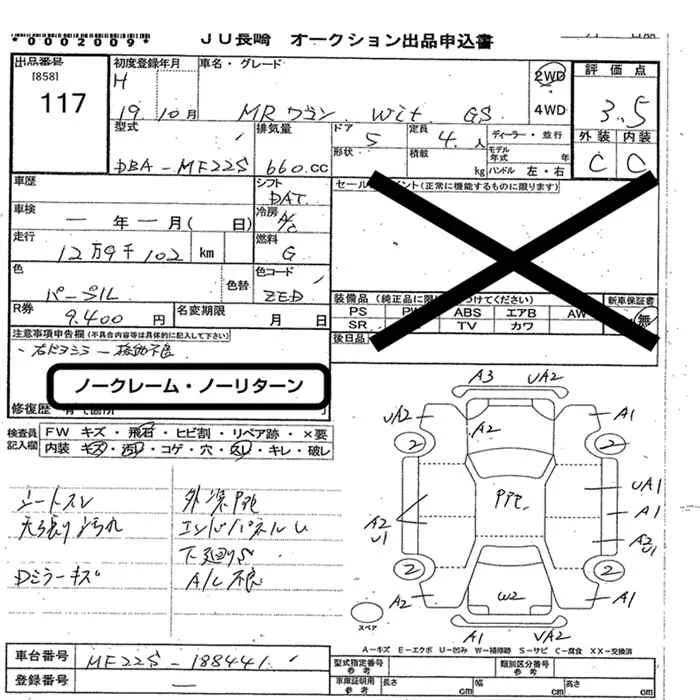 *0002009* JU長崎 オークション出品申込書
出品番号 初度登録年月 車名・グレード 2WD 評価点
[858] H 4WD 3.5
117 19.10月 MRワゴン Wit GS 外装 内装
型式 排気量 ドア 5 定員 4人 ディーラー・並行 C C
形状 積載 kg モデル年式 年
DBA-MF22S 660.cc ハンドル 左・右
車歴 シフト セールスポイント(正常に機能するものに限ります)
DAT
車検 一年一月( 日) 冷房 A/C
走行 12万9千102 km 燃料 G
色 色替 色コード
パープル ZED
装備品(純正品に限り つけてください) 新車保証書
R券 9.400円 名変期限 月 日 PS PW ABS エアB AW 無
SR TV カワ
注意事項申告欄(不具合内容等は具体的に記入して下さい) 後日品
・右ドアミラー
ノークレーム・ノーリターン
修復歴
検査員記入欄 FW キズ・飛石・ヒビ割・リペア跡・×要
内装・キズ・汚れ・コゲ・穴・スレ・キレ・破レ
シートスレ 外装PPC
天張り汚れ エンドパネルU
下廻りS
Dミラーキズ A/C不良
A3 UA2
UA2 A2 A1
2 2
PPC UA1
A1
A2 U1 A2 U1
2 2
A2 W2 A1
スペア A1 UA2
A-キズ E-エクボ U-凹み W-補修跡 S-サビ C-腐食 XX-交換済
車台番号 MF22S-188441 型式指定番号 参考 類別区分番号 参考
登録番号 車庫証明用 参考 長さ cm 幅 cm 高さ cm